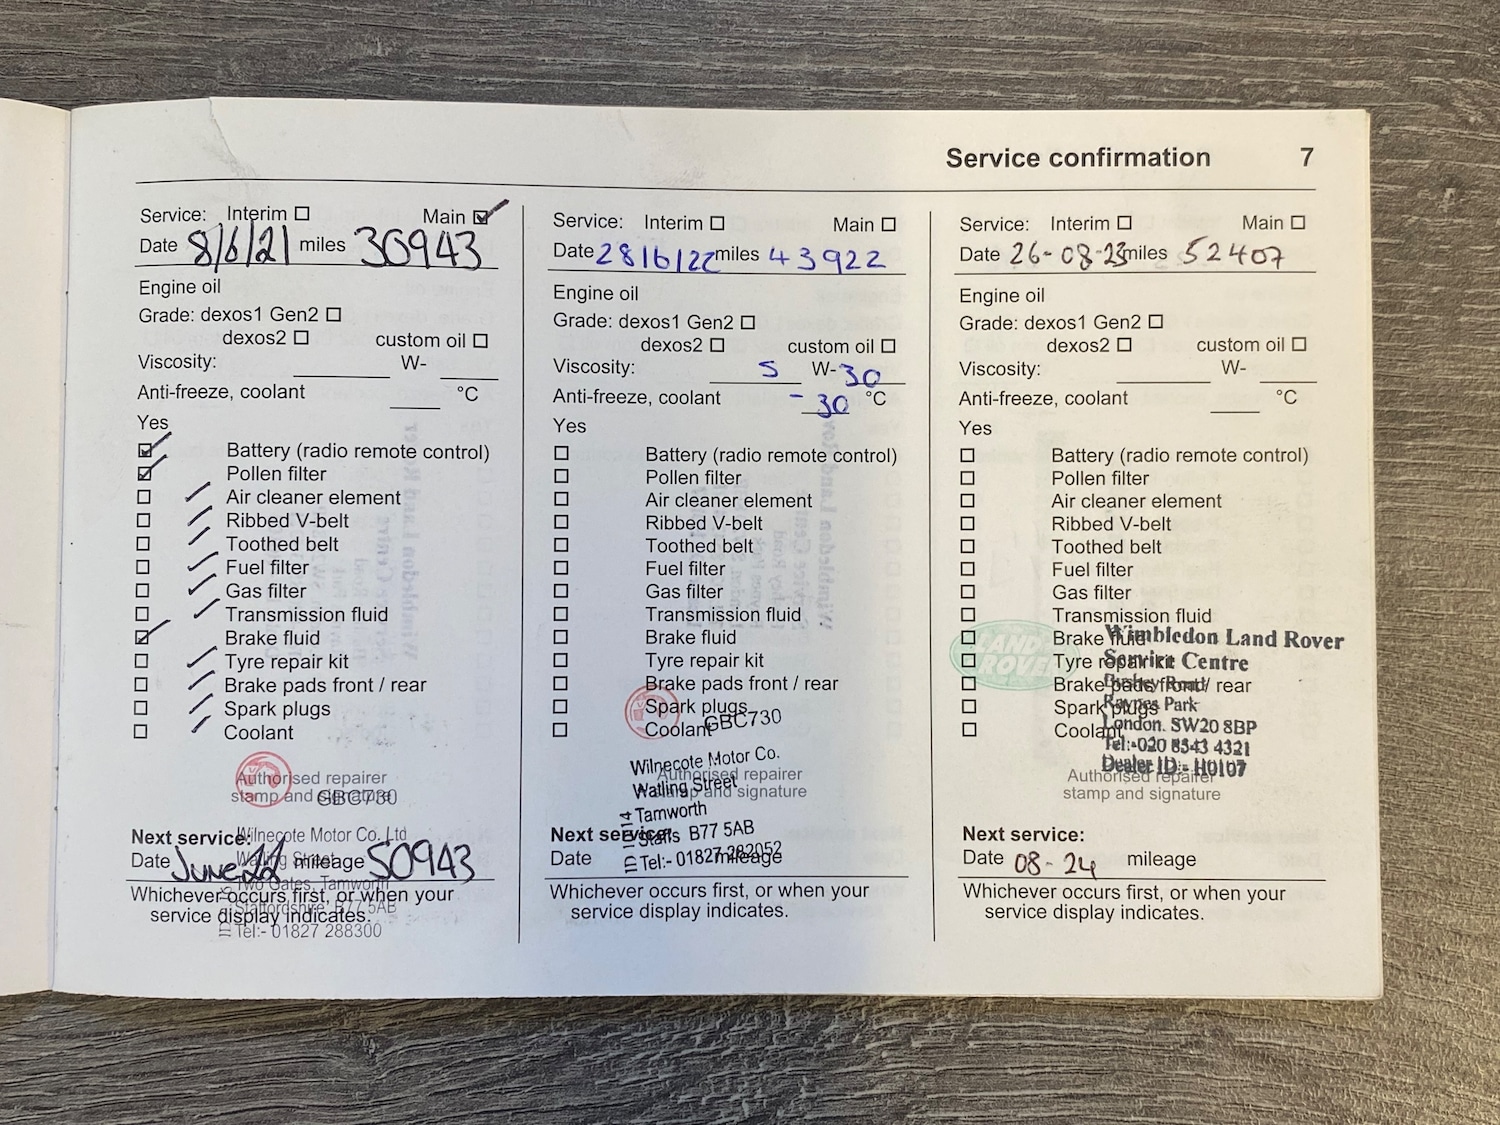 Service confirmation 7
Service: Interim Main
Date 8/6/21 miles 30943
Engine oil
Grade: dexos1 Gen2
dexos2 custom oil
Viscosity: W-
Anti-freeze, coolant °C
Yes
Battery (radio remote control)
Pollen filter
Air cleaner element
Ribbed V-belt
Toothed belt
Fuel filter
Gas filter
Transmission fluid
Brake fluid
Tyre repair kit
Brake pads front / rear
Spark plugs
Coolant
Authorised repairer
stamp and signature
GBC730
Wilnecote Motor Co. Ltd
Watling Street
Two Gates, Tamworth
Staffordshire, B77 5AB
Tel:- 01827 288300
Next service:
Date June 22 mileage 50943
Whichever occurs first, or when your
service display indicates.
Service: Interim Main
Date 28/6/22 miles 43922
Engine oil
Grade: dexos1 Gen2
dexos2 custom oil
Viscosity: 5 W-30
Anti-freeze, coolant -30 °C
Yes
Battery (radio remote control)
Pollen filter
Air cleaner element
Ribbed V-belt
Toothed belt
Fuel filter
Gas filter
Transmission fluid
Brake fluid
Tyre repair kit
Brake pads front / rear
Spark plugs
Coolant
GBC730
Wilnecote Motor Co.
Watling Street
Tamworth
Staffs B77 5AB
Tel:- 01827 282052
Authorised repairer
stamp and signature
Next service:
Date mileage
Whichever occurs first, or when your
service display indicates.
Service: Interim Main
Date 26-08-23 miles 52407
Engine oil
Grade: dexos1 Gen2
dexos2 custom oil
Viscosity: W-
Anti-freeze, coolant °C
Yes
Battery (radio remote control)
Pollen filter
Air cleaner element
Ribbed V-belt
Toothed belt
Fuel filter
Gas filter
Transmission fluid
Brake fluid
Tyre repair kit
Brake pads front / rear
Spark plugs
Coolant
LAND
ROVER
Wimbledon Land Rover
Service Centre
Bushey Road
Raynes Park
London. SW20 8BP
Tel:-020 8543 4321
Dealer ID:- H0107
Authorised repairer
stamp and signature
Next service:
Date 08-24 mileage
Whichever occurs first, or when your
service display indicates.